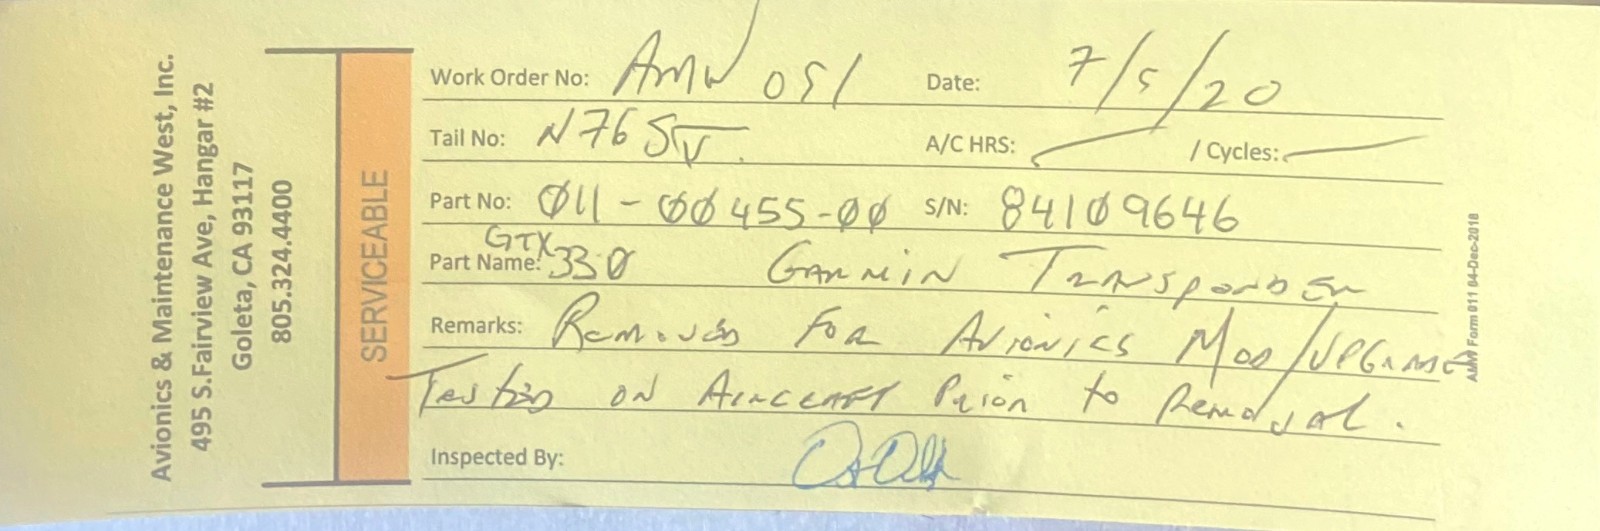 Avionics & Maintenance West, Inc.
495 S.Fairview Ave, Hangar #2
Goleta, CA 93117
805.324.4400
SERVICEABLE
Work Order No: AMW 051 Date: 7/5/20
Tail No: N76 A/C HRS: / Cycles:
Part No: 011-00455-00 S/N: 84109646
Part Name: GTX 330 GARMIN TRANSPONDER
Remarks: Removed FOR AVIONICS MOD/UPGRADE
Tested ON AIRCRAFT PRIOR to Removal.
Inspected By:
AMW Form 011 04-Dec-2018